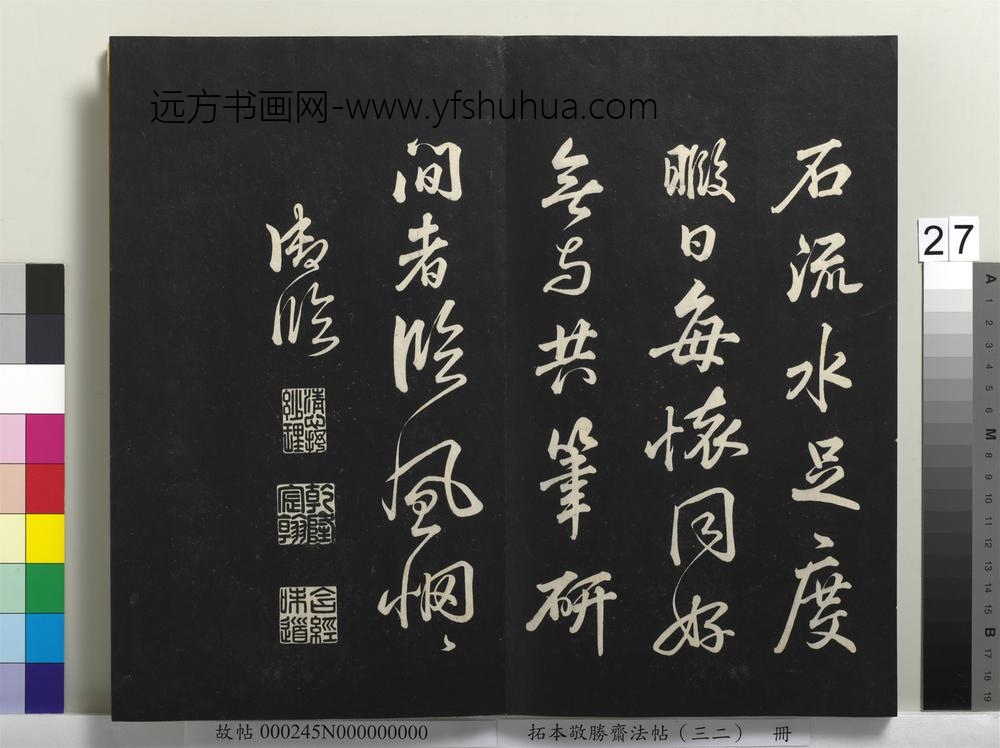 远方书画网-www.yfshuhua.com
石流水足度
暇日每懷同好
無与共筆研
間者臨風惘〻
御臨
清心抒妙理
乾隆宸翰
含經味道
27
A 1 2 3 4 5 6 M 8 9 10 11 12 13 14 15 B 17 18 19
故帖 000245N000000000
拓本敬勝齋法帖（三二） 冊